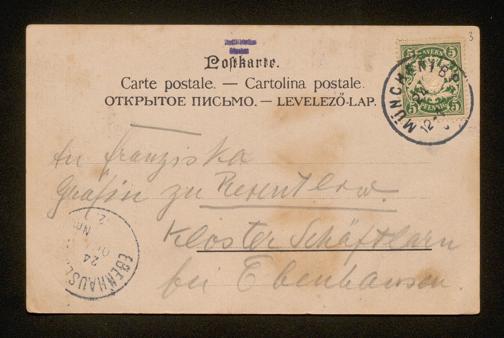 3
Postkarte.
Carte postale. — Cartolina postale.
ОТКРЫТОЕ ПИСЬМО. — LEVELEZŐ-LAP.
5 BAYERN 5
5 PFENNIG 5
MÜNCHEN 1 B.P.
An Franziska
Gräfin zu Reventlow.
Kloster Schäftlarn
bei Ebenhausen.
EBENHAUSEN
24